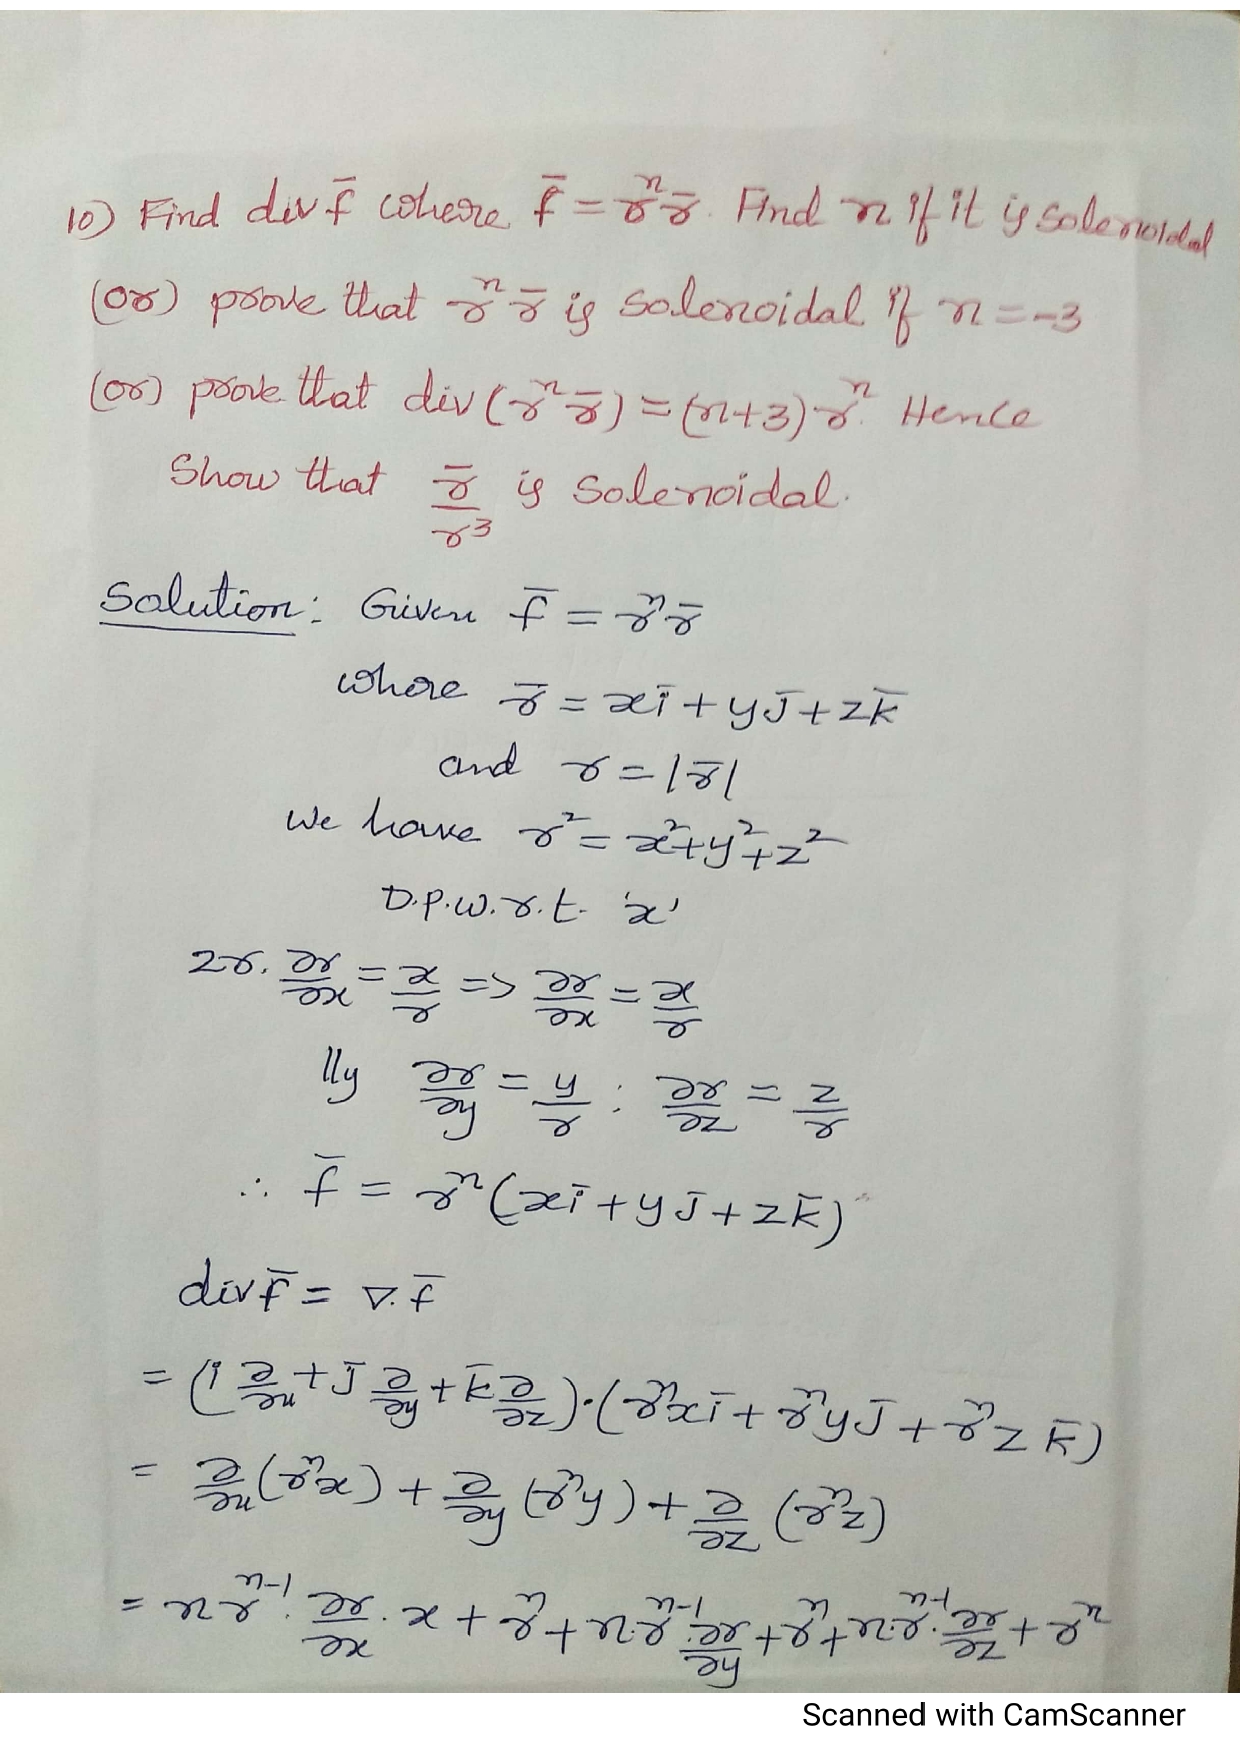 10) Find div f̄ where f̄ = rⁿ r̄. Find n if it is solenoidal
(or) prove that rⁿ r̄ is solenoidal if n = -3
(or) prove that div (rⁿ r̄) = (n+3) rⁿ. Hence
Show that r̄/r³ is solenoidal.
Solution: Given f̄ = rⁿ r̄
where r̄ = xī + yj̄ + zk̄
and r = |r̄|
we have r² = x² + y² + z²
D.p.w.r.t. 'x'
2r. ∂r/∂x = x/r => ∂r/∂x = x/r
lly ∂r/∂y = y/r : ∂r/∂z = z/r
∴ f̄ = rⁿ (xī + yj̄ + zk̄)
div f̄ = ∇. f̄
= (ī ∂/∂x + j̄ ∂/∂y + k̄ ∂/∂z) · (rⁿxī + rⁿyj̄ + rⁿz k̄)
= ∂/∂x (rⁿx) + ∂/∂y (rⁿy) + ∂/∂z (rⁿz)
= n rⁿ⁻¹. ∂r/∂x . x + rⁿ + n.rⁿ⁻¹. ∂r/∂y + rⁿ + n.rⁿ⁻¹. ∂r/∂z + rⁿ
Scanned with CamScanner